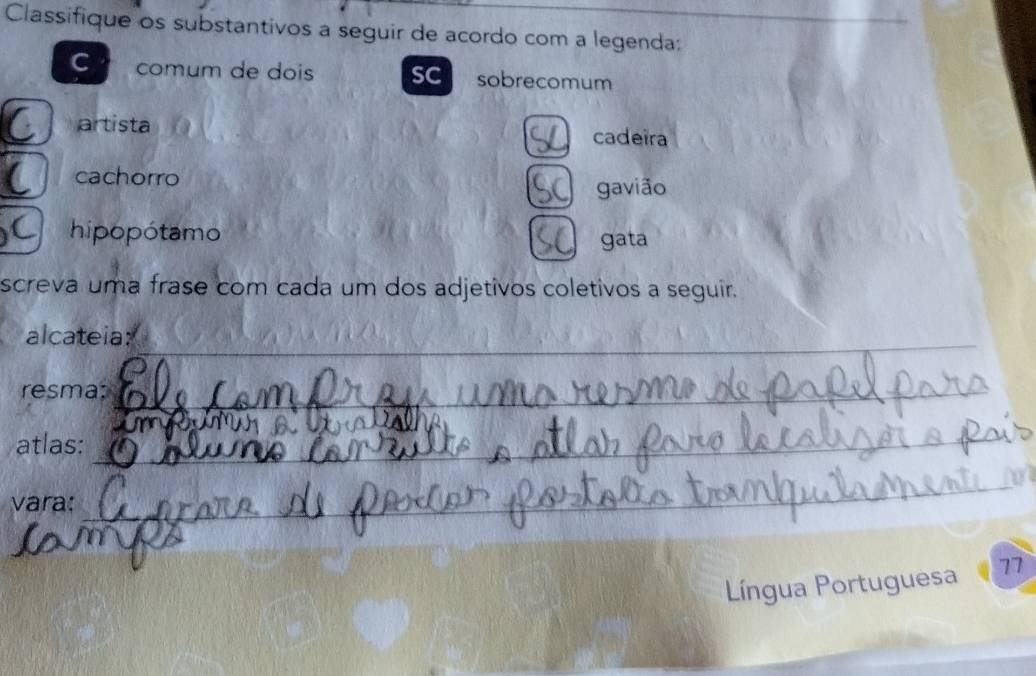 Classifique os substantivos a seguir de acordo com a legenda:
C comum de dois SC sobrecomum
C artista SC cadeira
C cachorro SC gavião
SC hipopótamo SC gata
screva uma frase com cada um dos adjetivos coletivos a seguir.
alcateia:
resma: Ele comprou uma resma de papel para
imprimir o trabalho
atlas: O aluno consulto o atlas para localizar o pais
vara: A vara de porcos pastava tranquilamente no
campo
Língua Portuguesa 77